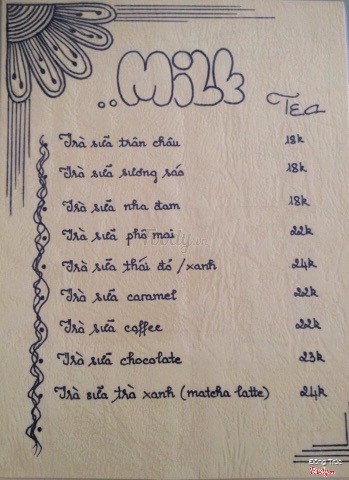 ..Milk
Tea
Trà sữa trân châu 18k
Trà sữa sương sáo 18k
Trà sữa nha đam 18k
Trà sữa phô mai 22k
Trà sữa thái đỏ / xanh 24k
Trà sữa caramel 22k
Trà sữa coffee 22k
Trà sữa chocolate 23k
Trà sữa trà xanh (matcha latte) 24k
Foody.vn
Đông Trúc
Foody.vn